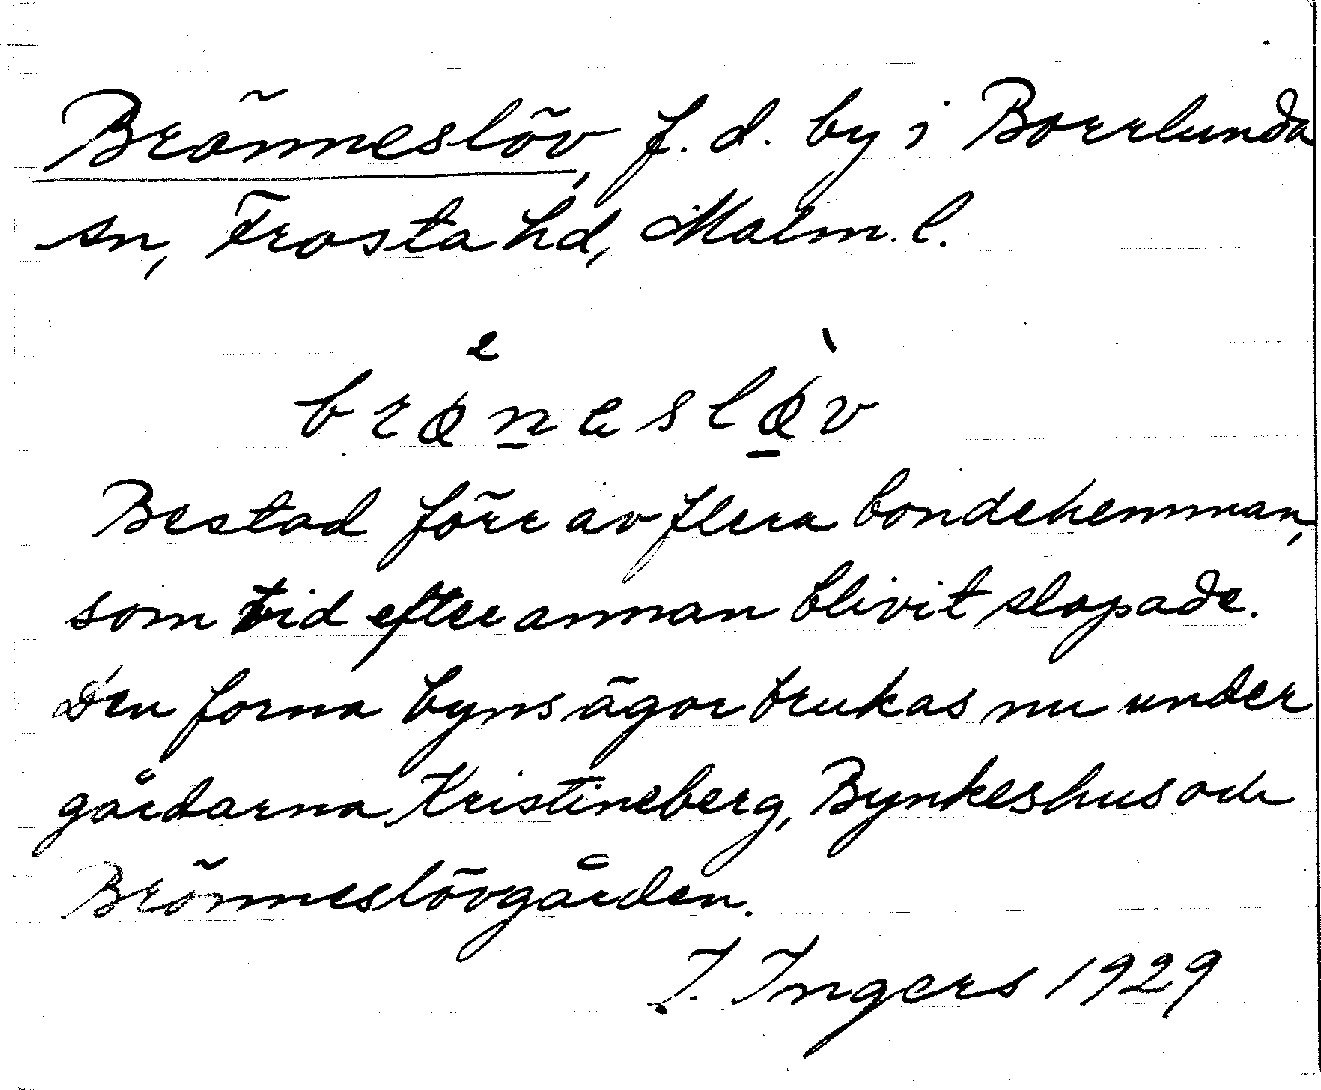 Brönneslöv, f. d. by i Borrlunda
sn, Frosta hd, Malm. l.
brøneslø̀v
Bestod förr av flera bondehemman,
som tid efter annan blivit slopade.
Den forna byns ägor brukas nu under
gårdarna Kristineberg, Bynkeshus och
Brönneslövgården.
I. Ingers 1929